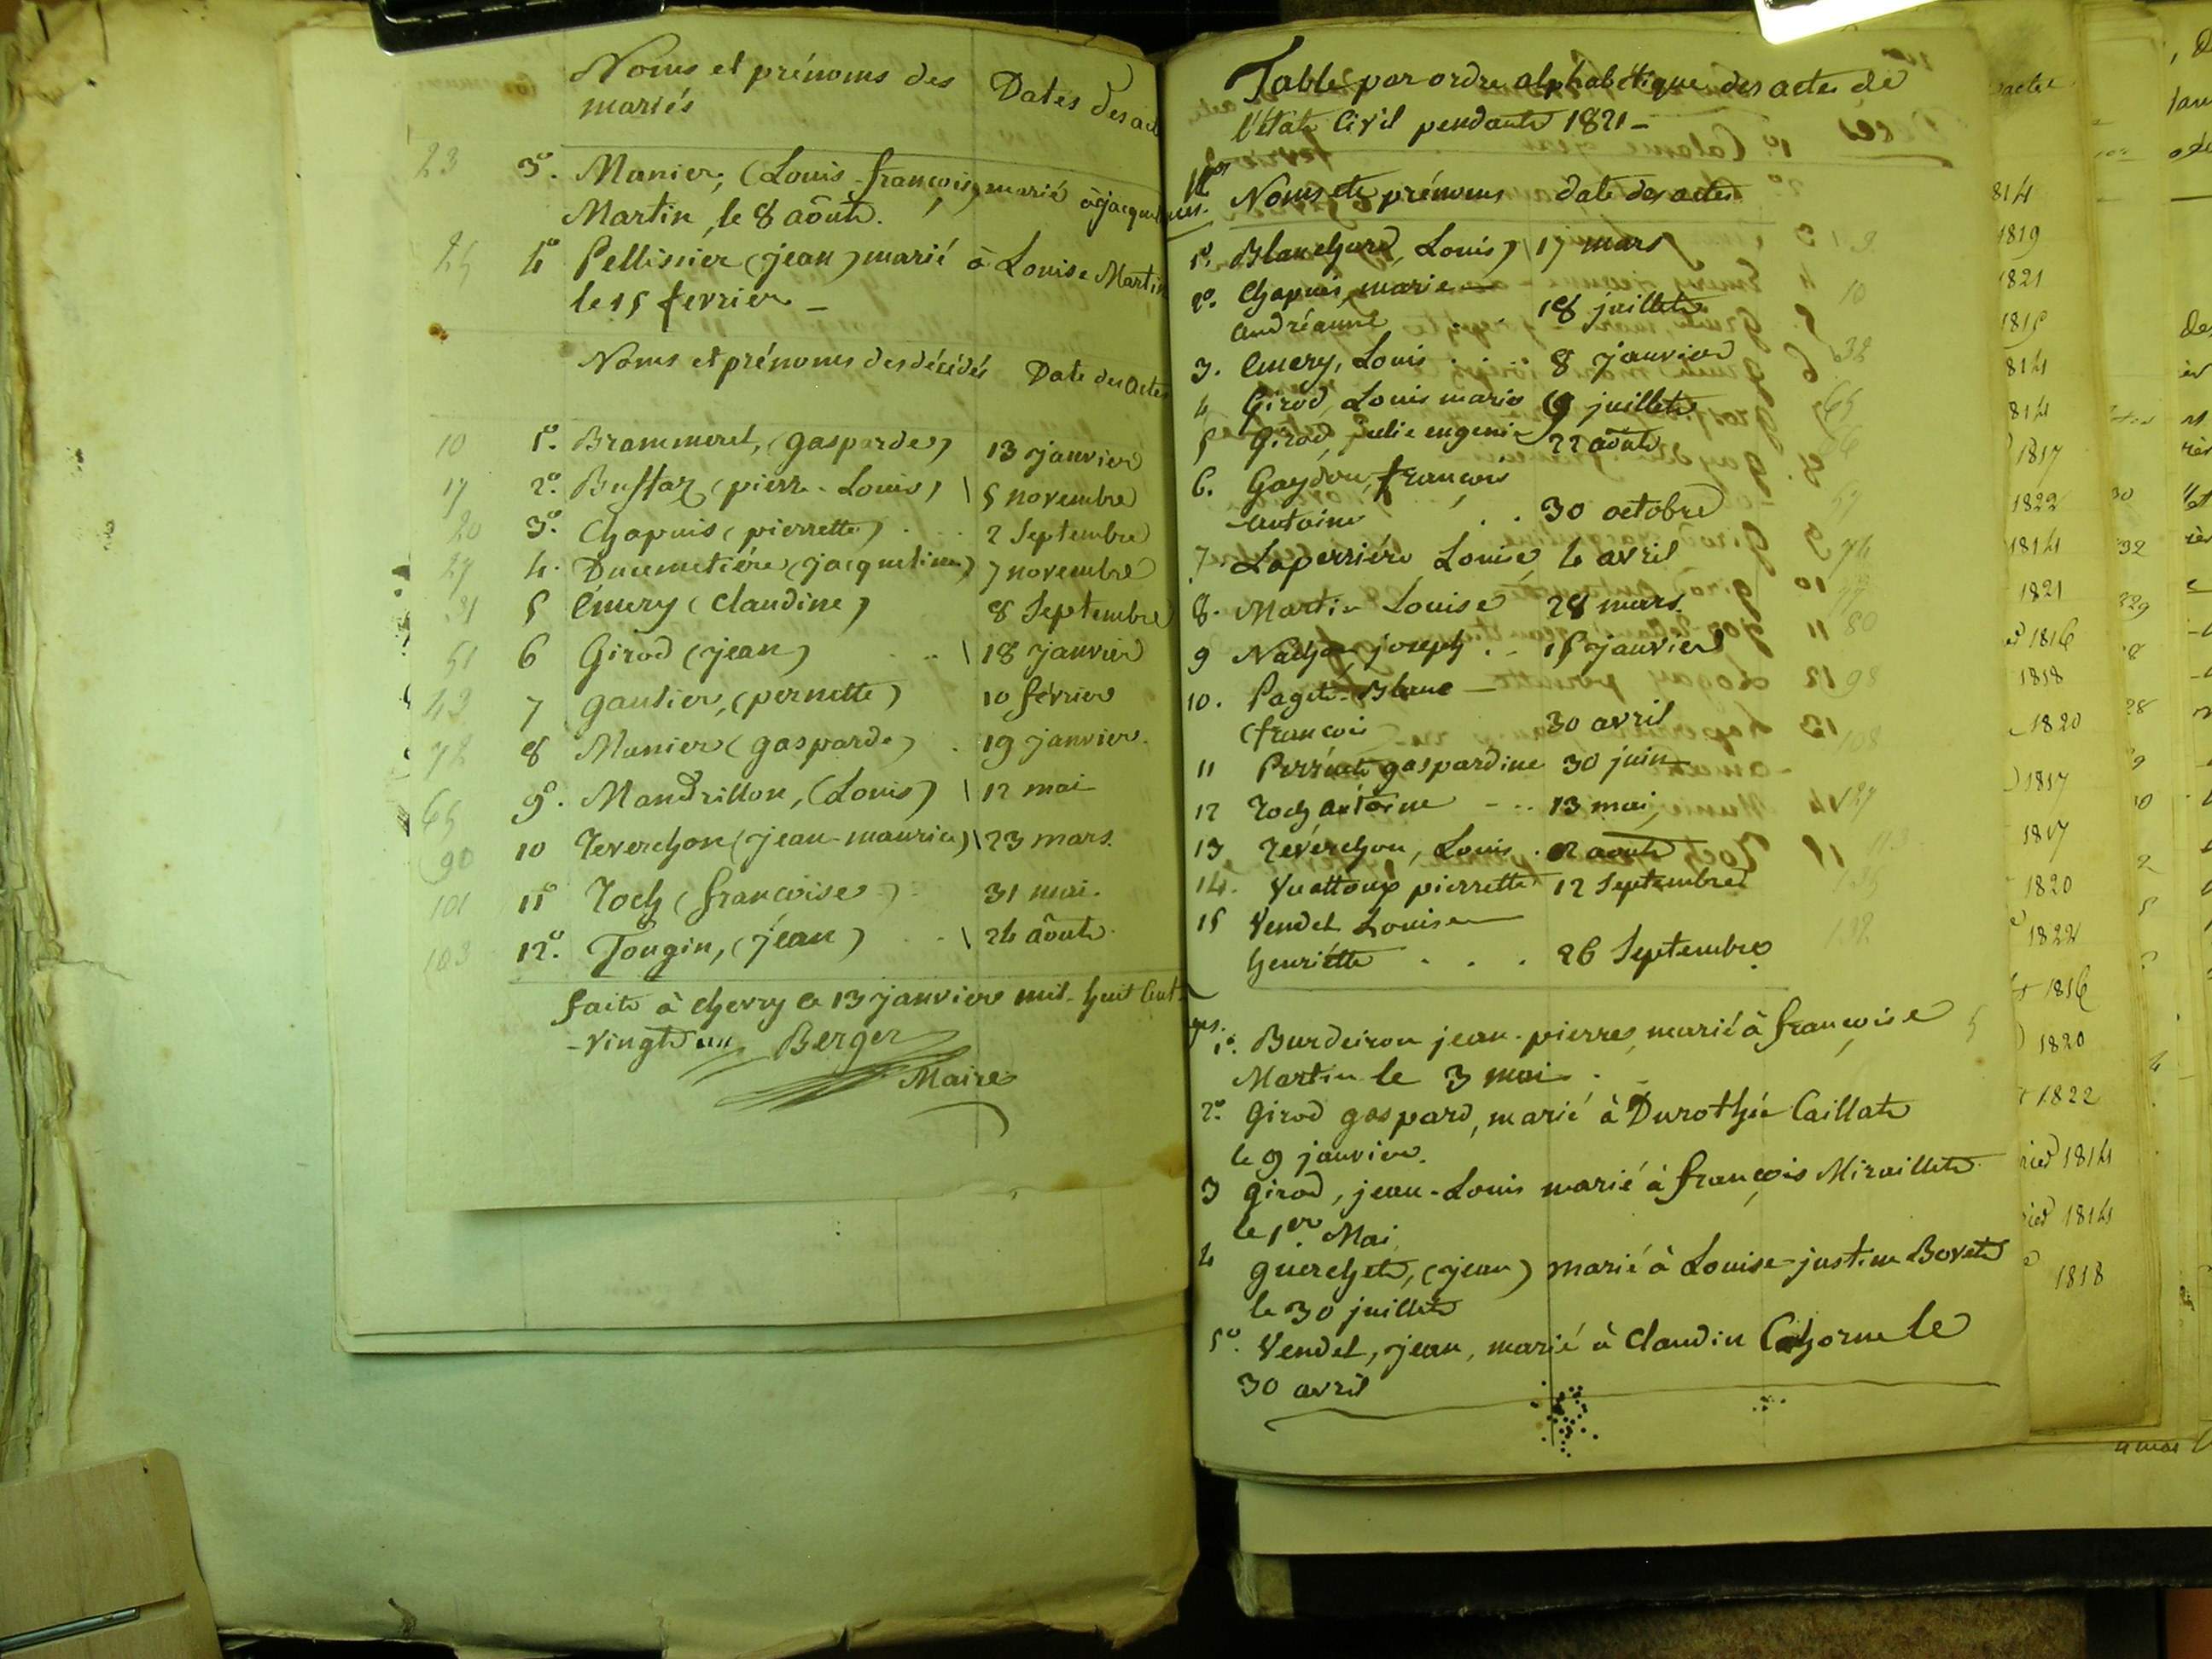 Noms et prénoms des Dates des act
mariés
23 3º. Manier, (Louis-françois) marié à jacque
Martin, le 8 aôut.
25 4º Pellissier (jean) marié à Louise Martin
le 15 fevrier -
Noms et prénoms des décédés Date des actes
10 1º. Brammerel, (gasparde) 13 janvier
17 2º. Buffaz (pierre-Louis) 5 novembre
20 3º. Chapuis (pierrette) 2 Septembre
27 4. Ducimetière (jacqueline) 7 novembre
31 5 émery (Claudine) 8 Septembre
51 6 Girod (jean) 18 janvier
43 7 gautier, (pernette) 10 février
72 8 Manier (gasparde) 19 janvier
65 9º. Mandrillon, (Louis) 12 mai
90 10 Reverchon (jean-maurice) 23 mars.
101 11º Roch (françoise) 31 mai.
103 12º. Tougin, (jean) 24 aôut
fait à chevry le 13 janvier mil-huit Cent
-vingt un Berger
Maire
Table par ordre alphabétique des actes de
l'état Civil pendant 1821 -
Noms et prénoms date des actes
1º. Blanchard, Louis 17 mars
2º. Chapuis, marie
andréanne 18 juillet
3. émery, Louis 8 janvier
4 Girod, Louis marie 9 juillet
5 Girod, Julie eugenie 22 août
6. Gaydou, françois
antoine 30 octobre
7 Laperrière Louise 4 avril
8. Martin Louise 28 mars
9 Nachon, joseph 15 janvier
10. Paget-Blanc
françois 30 avril
11 Perréart gaspardine 30 juin
12 Roch antoine 13 mai
13 Révérchon, Louis 12 août
14. Vuattoup pierrette 12 Septembre
15 Vendel Louise
henriétte 26 Septembre
ges.
1º. Burdeiron jean-pierre, marié à françoise
Martin le 3 mai
2º. Girod gaspard, marié à Durothée Caillat
le 9 janvier.
3 girod, jean-Louis marié à françois Miraillet
le 1er. Mai
4 guerchet, (jean) marié à Louise-justine Bovet
le 30 juillet
5º. Vendel, jean, marié à Claudin Chorne le
30 avril